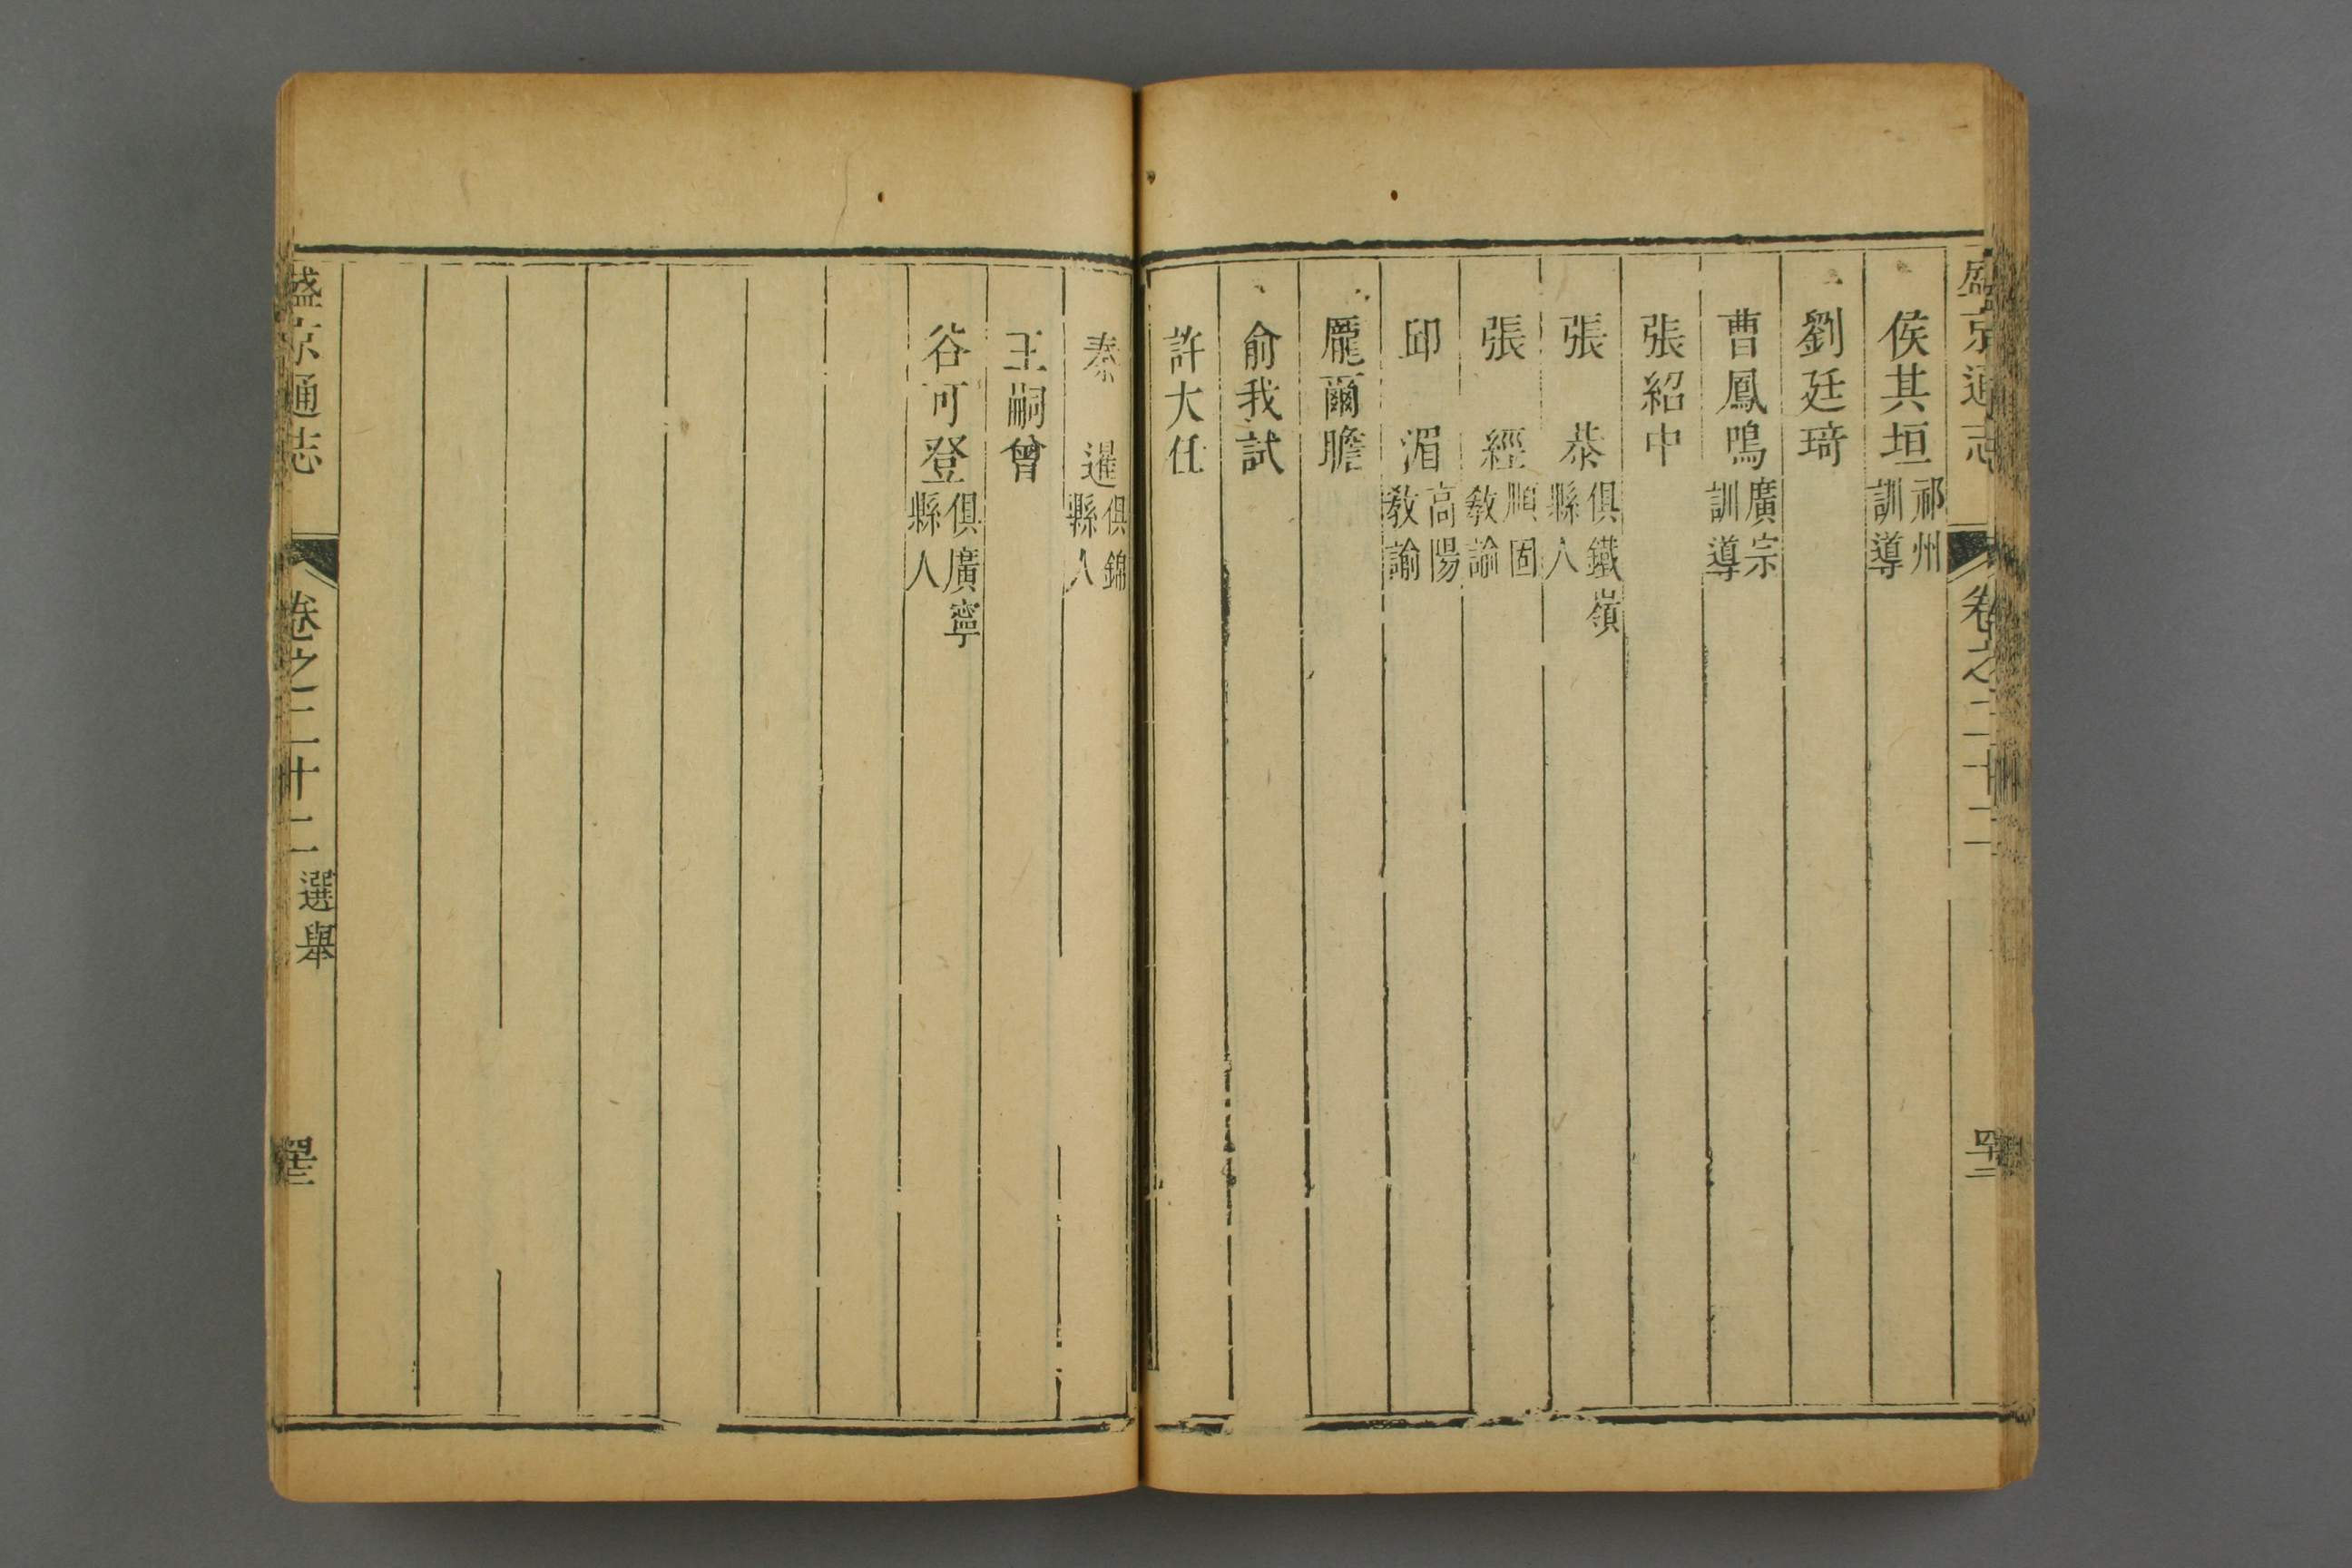 盛京通志 卷之三十二
侯其垣 祁州訓導
劉廷琦
曹鳳鳴 廣宗訓導
張紹中
張 恭 俱鐵嶺縣人
張 經 順固教諭
邱 湄 高陽教諭
龎爾瞻
俞我試
許大任
秦 暹 俱錦縣人
王嗣曾
谷可登 俱廣寧縣人
盛京通志 卷之三十二 選舉